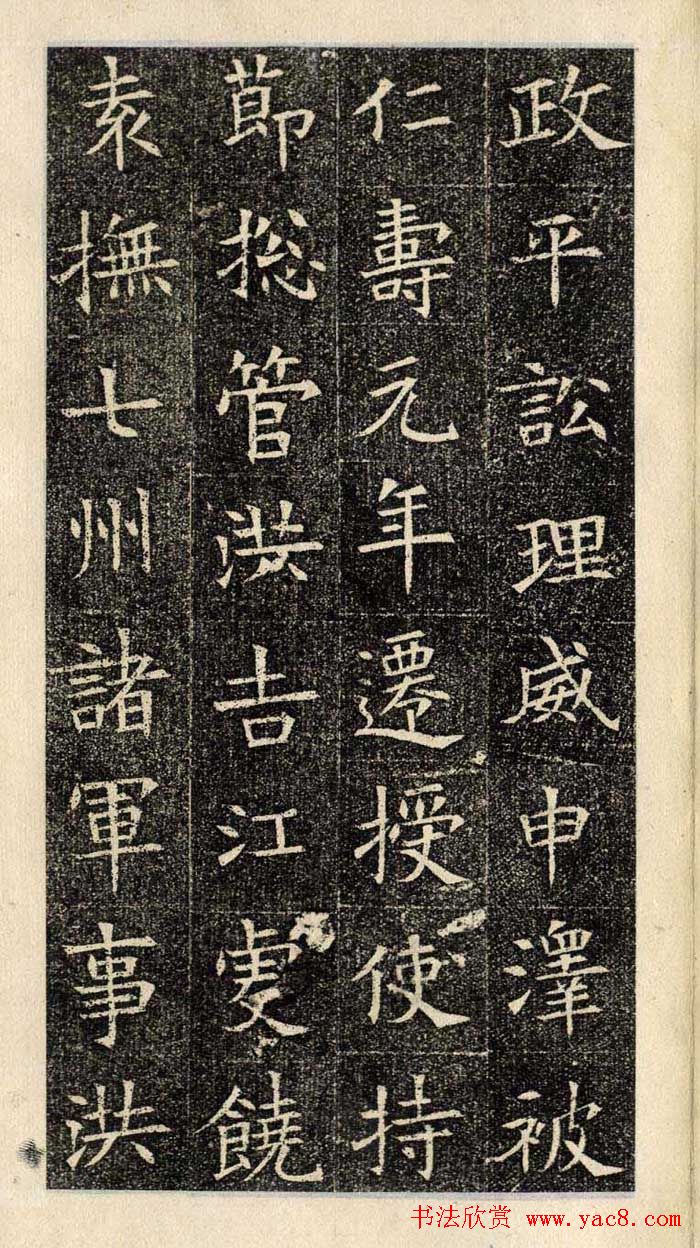 政平訟理威申澤被
仁壽元年遷授使持
莭揔管洪吉江虔饒
袁撫七州諸軍事洪
书法欣赏 www.yac8.com